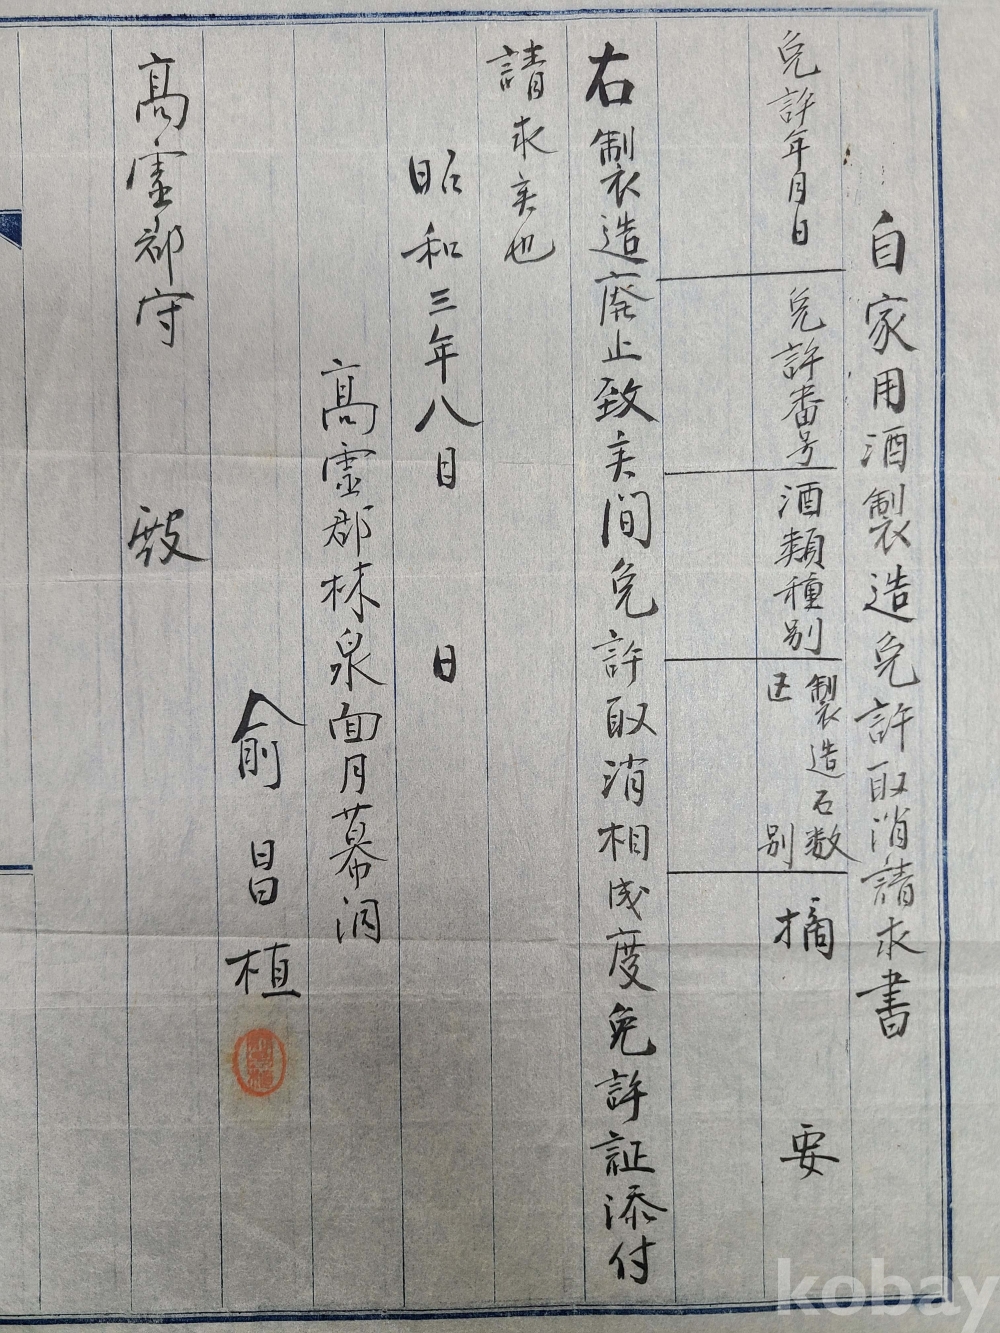 自家用酒製造免許取消請求書
免許年月日 免許番号 酒類種別 製造石数区別 摘要
右製造廃止致矣間免許取消相成度免許証添付
請求矣也
昭和三年八月 日
高霊郡林泉面月幕洞
俞昌植
高霊郡守 殿
kobay